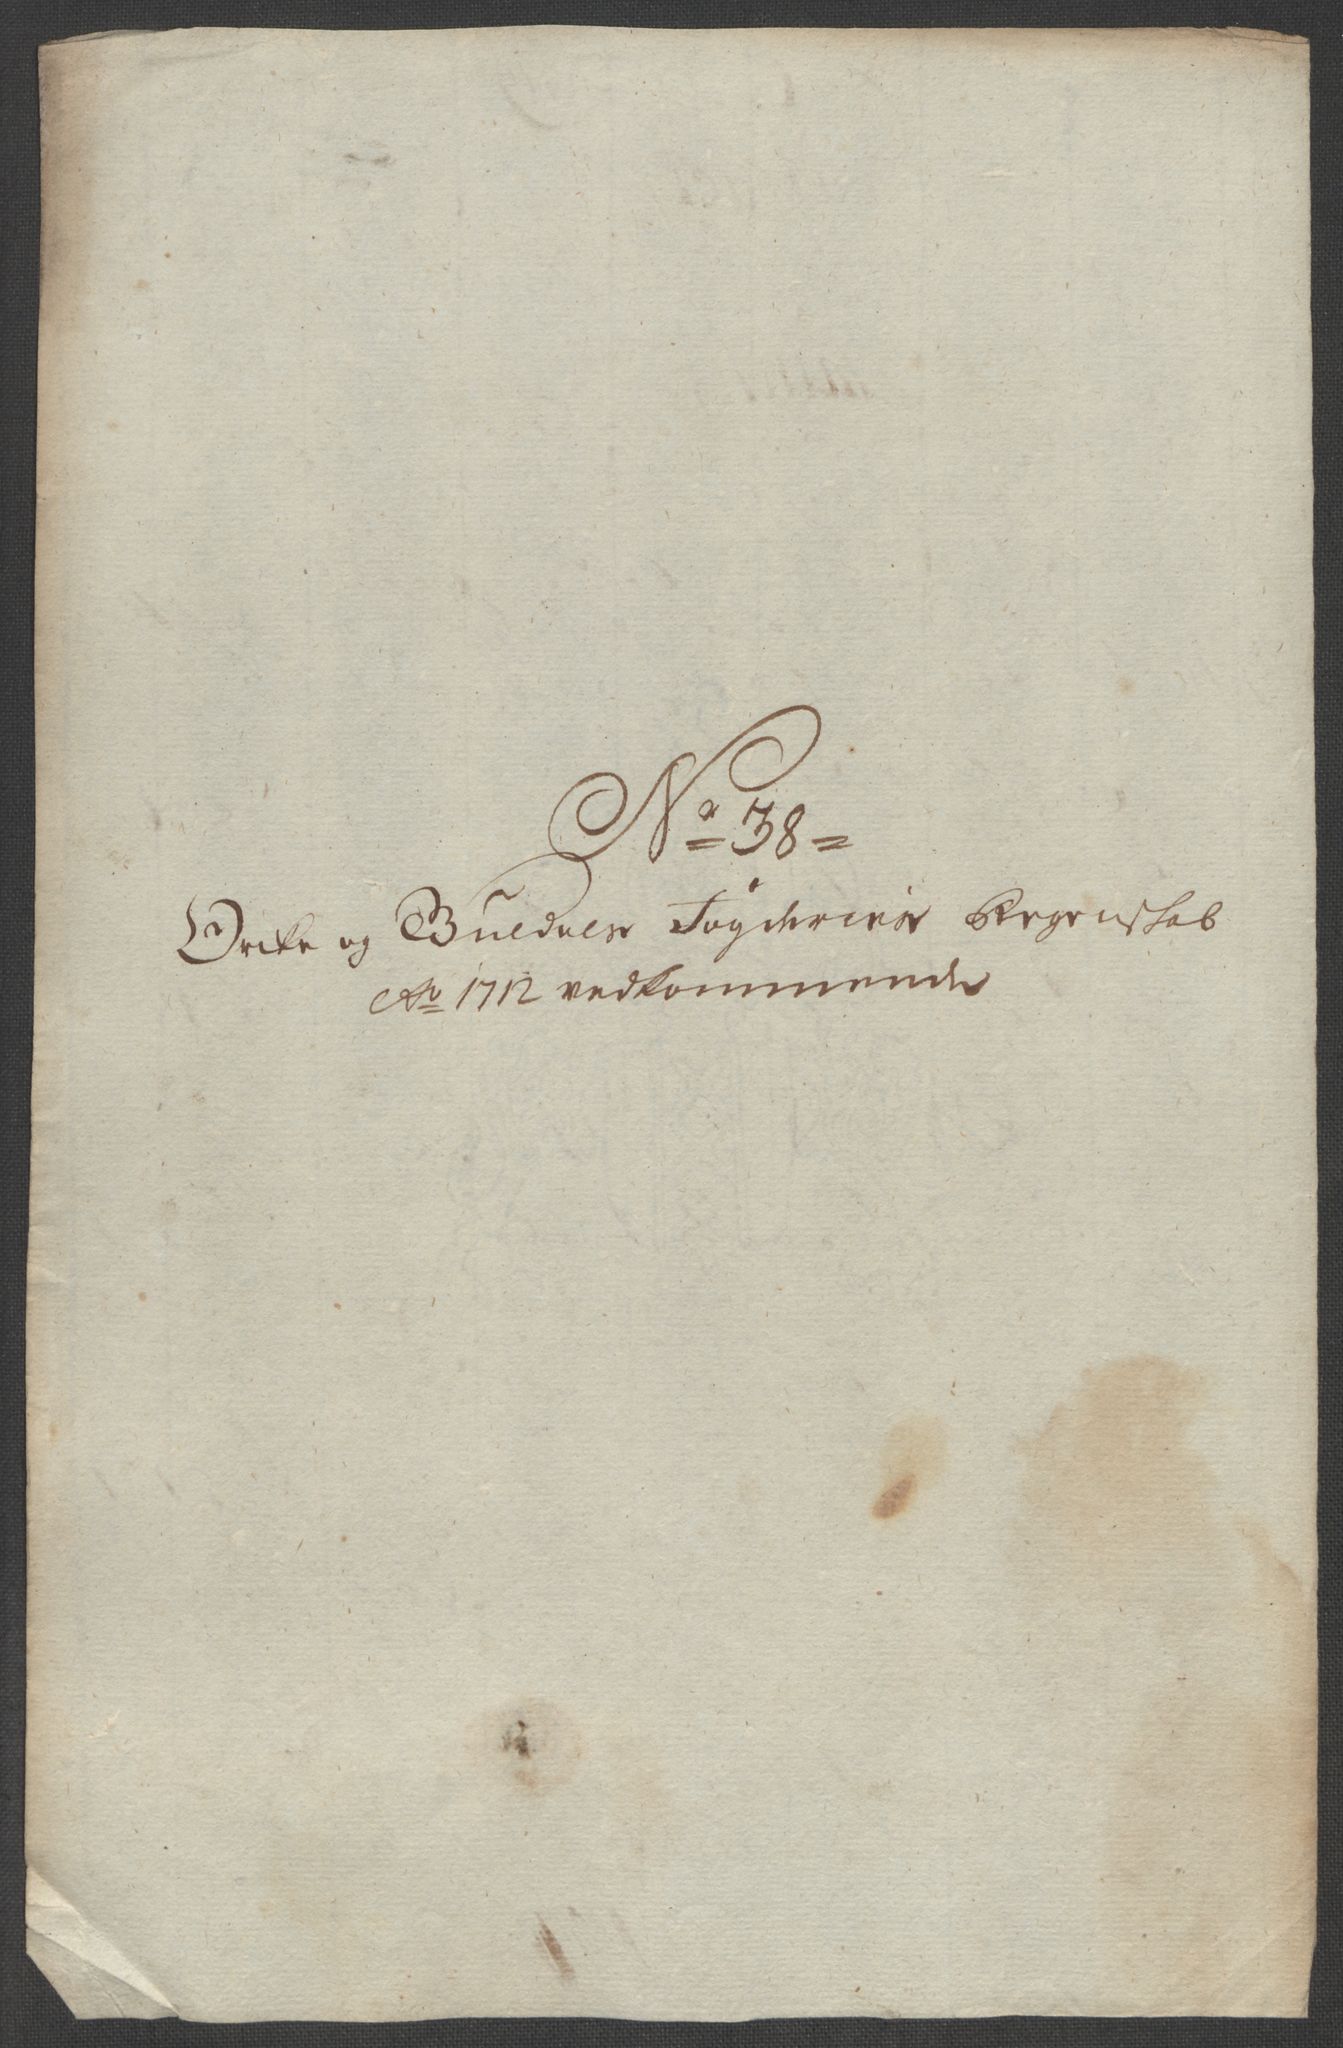 No 38
Ørke og Guldals Fogderies Regenskab
Ao 1712 vedkommende